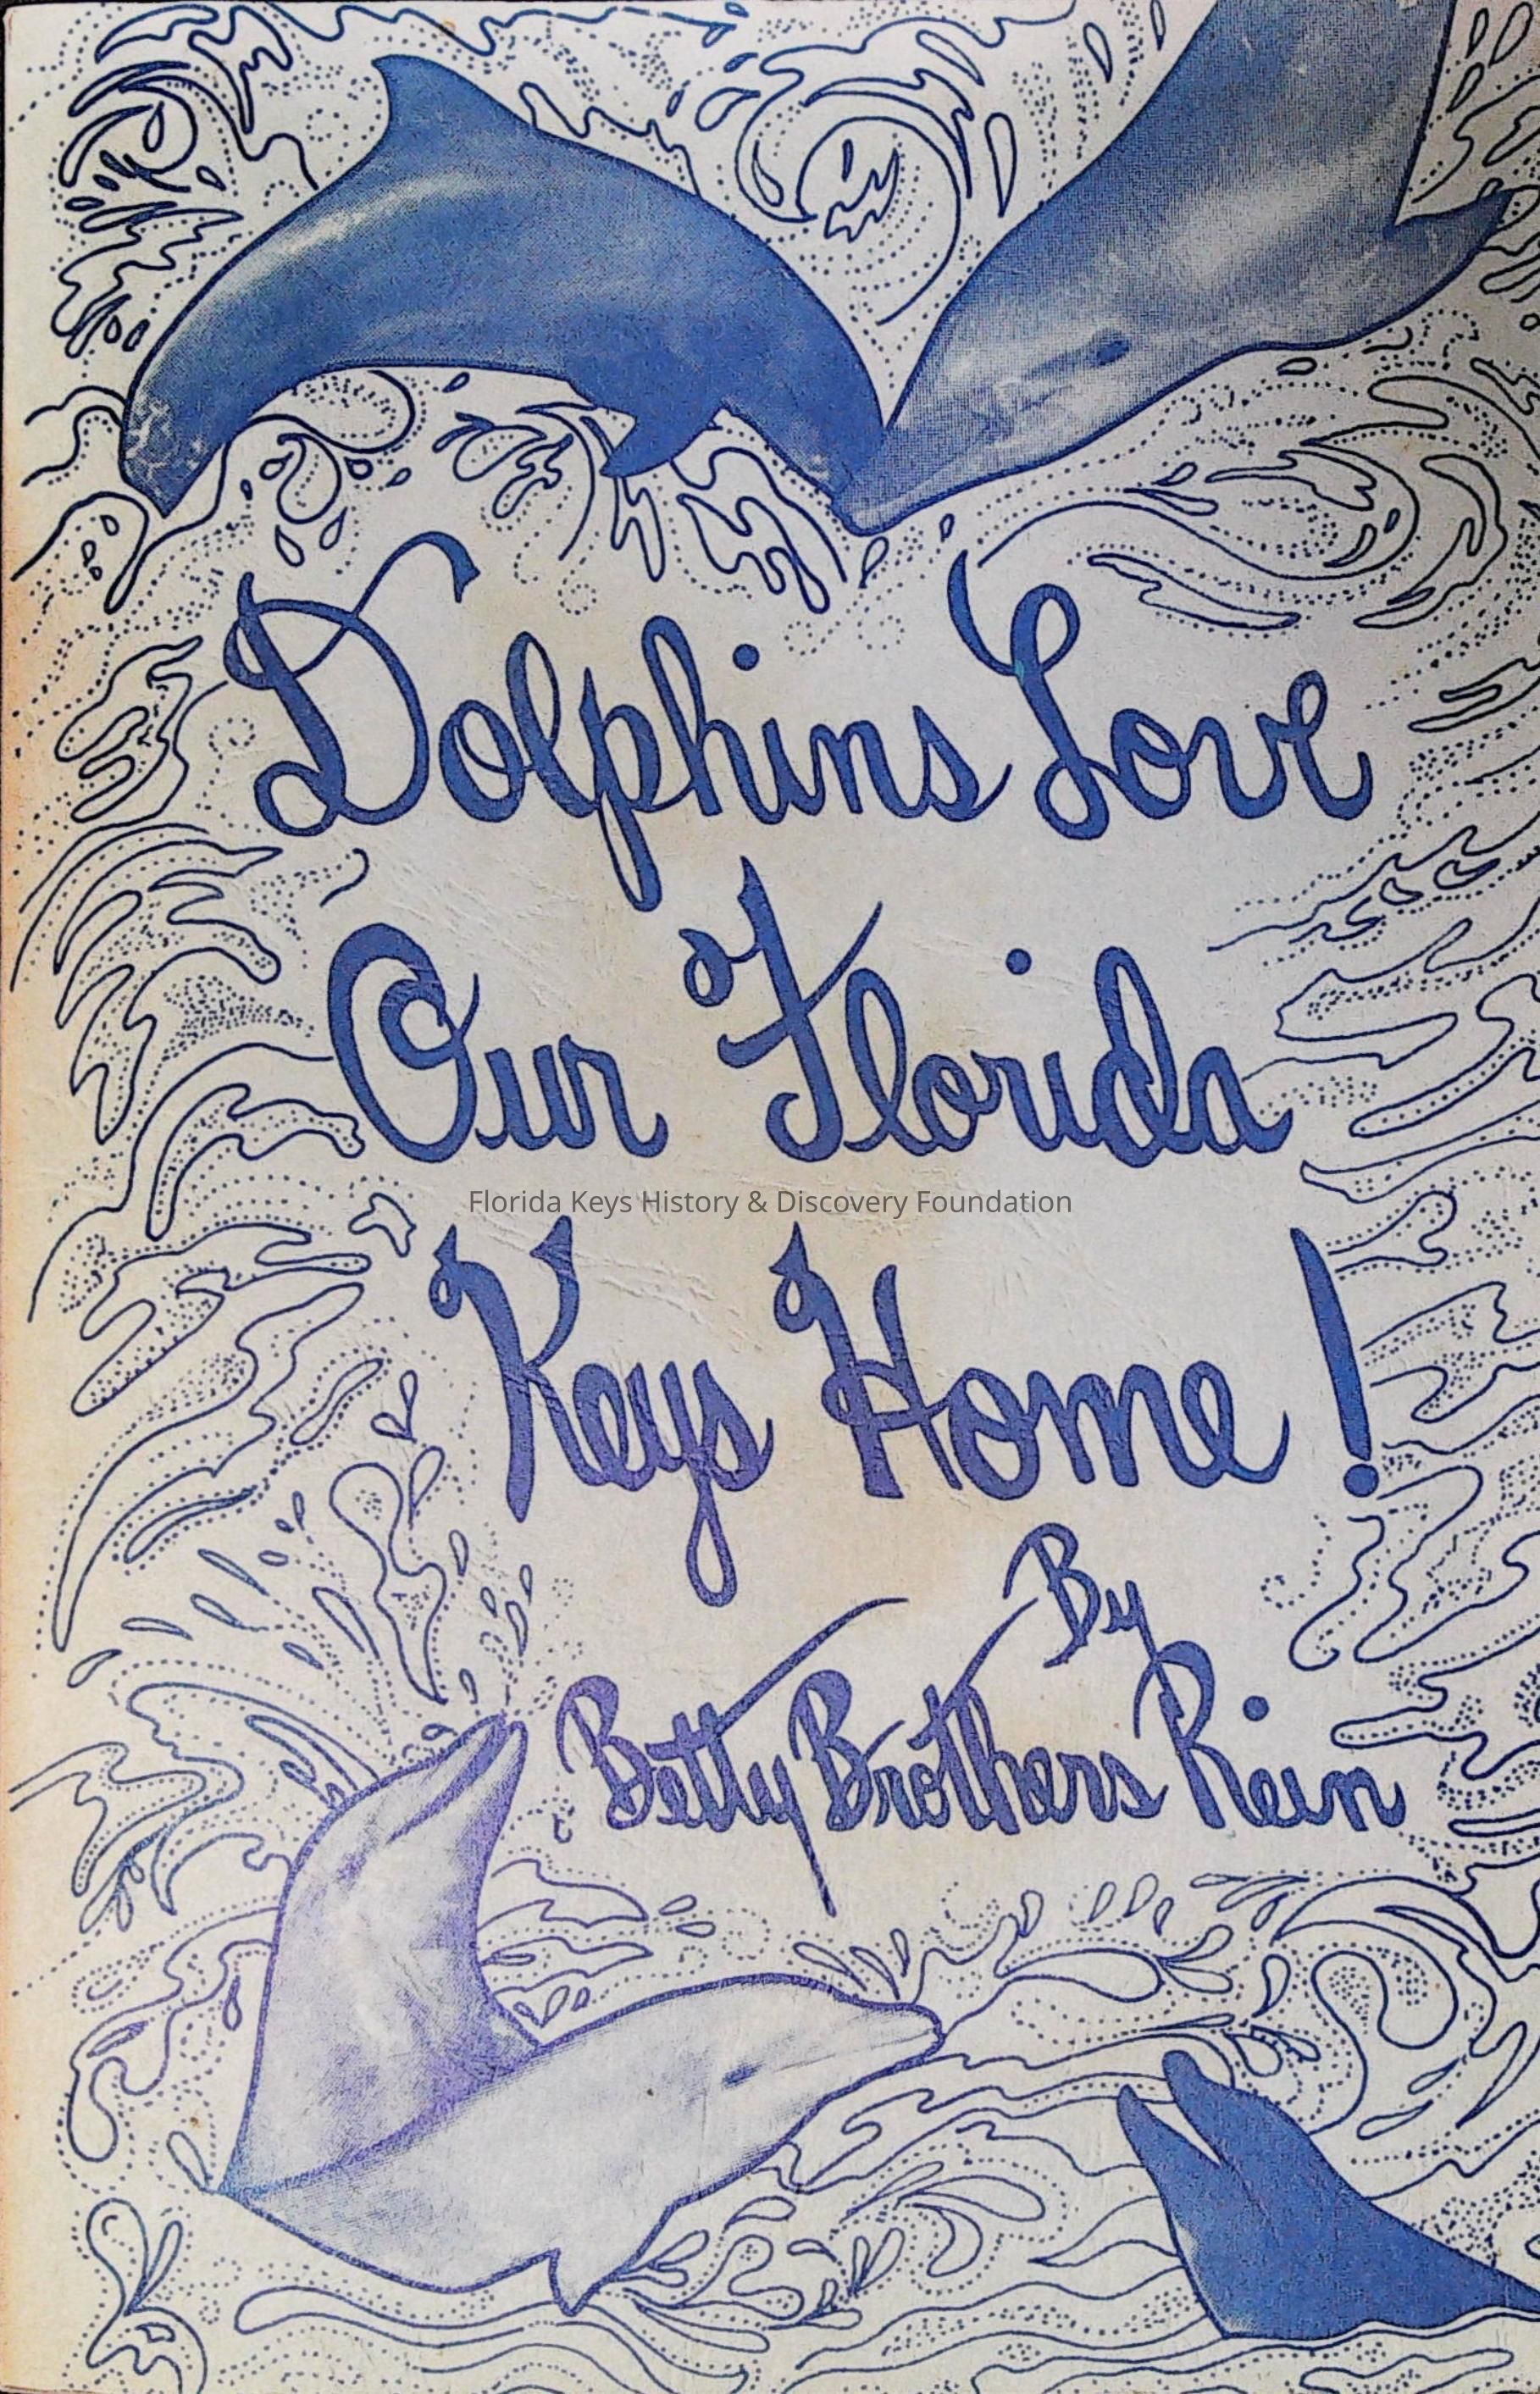 Dolphins Love
Our Florida
Florida Keys History & Discovery Foundation
Keys Home!
By
Betty Brothers Rein